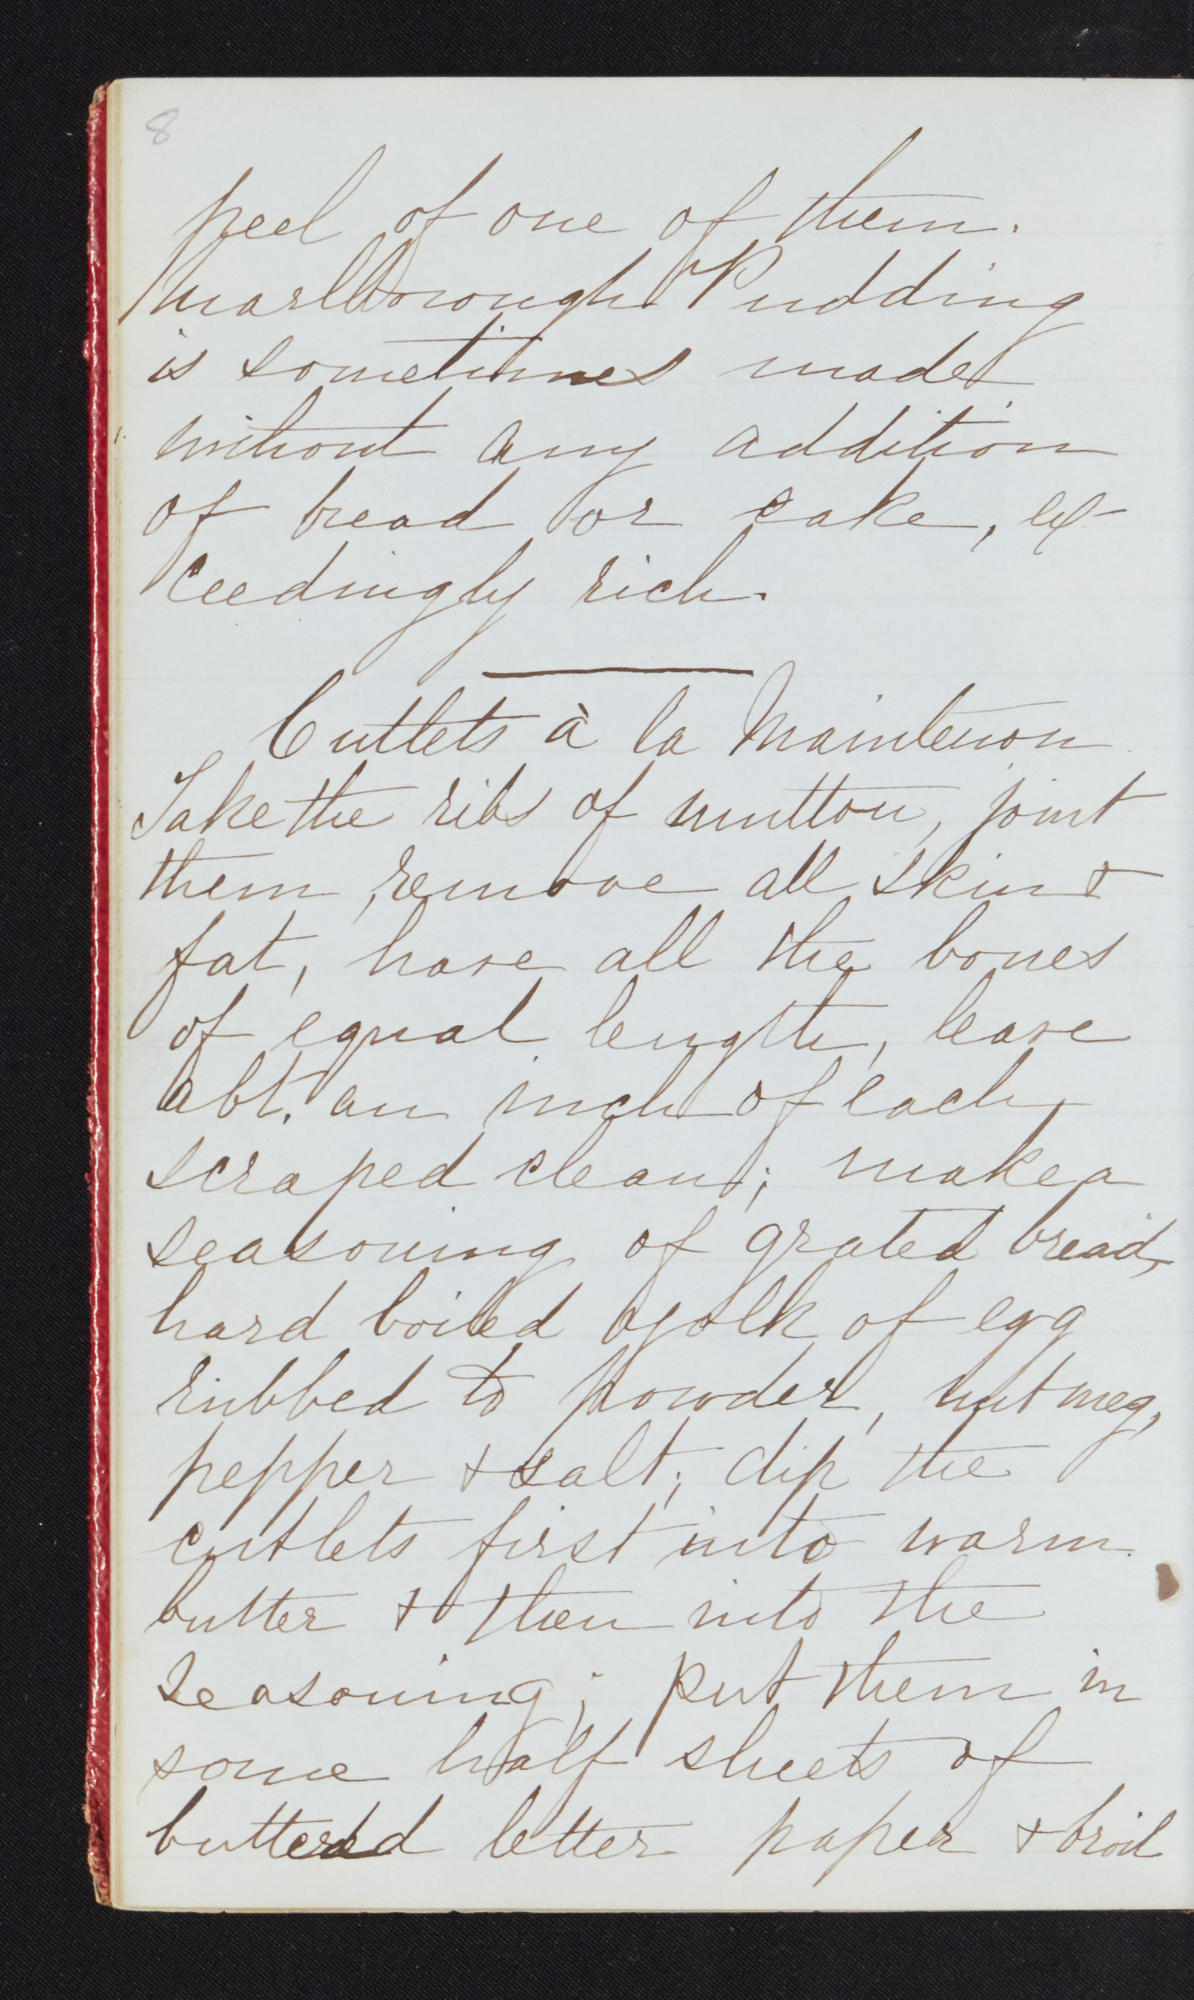 8
peel of one of them.
Marlborough Pudding
is sometimes made
without any addition
of bread or cake, ex-
ceedingly rich.
Cutlets à la Maintenon
Take the ribs of mutton, joint
them, remove all skin &
fat, have all the bones
of equal length, leave
abt. an inch of each
scraped clean; make a
seasoning of grated bread,
hard boiled yolk of egg
rubbed to powder, nutmeg,
pepper & salt; dip the
cutlets first into warm
butter & then into the
seasoning; put them in
some half sheets of
buttered letter paper & broil